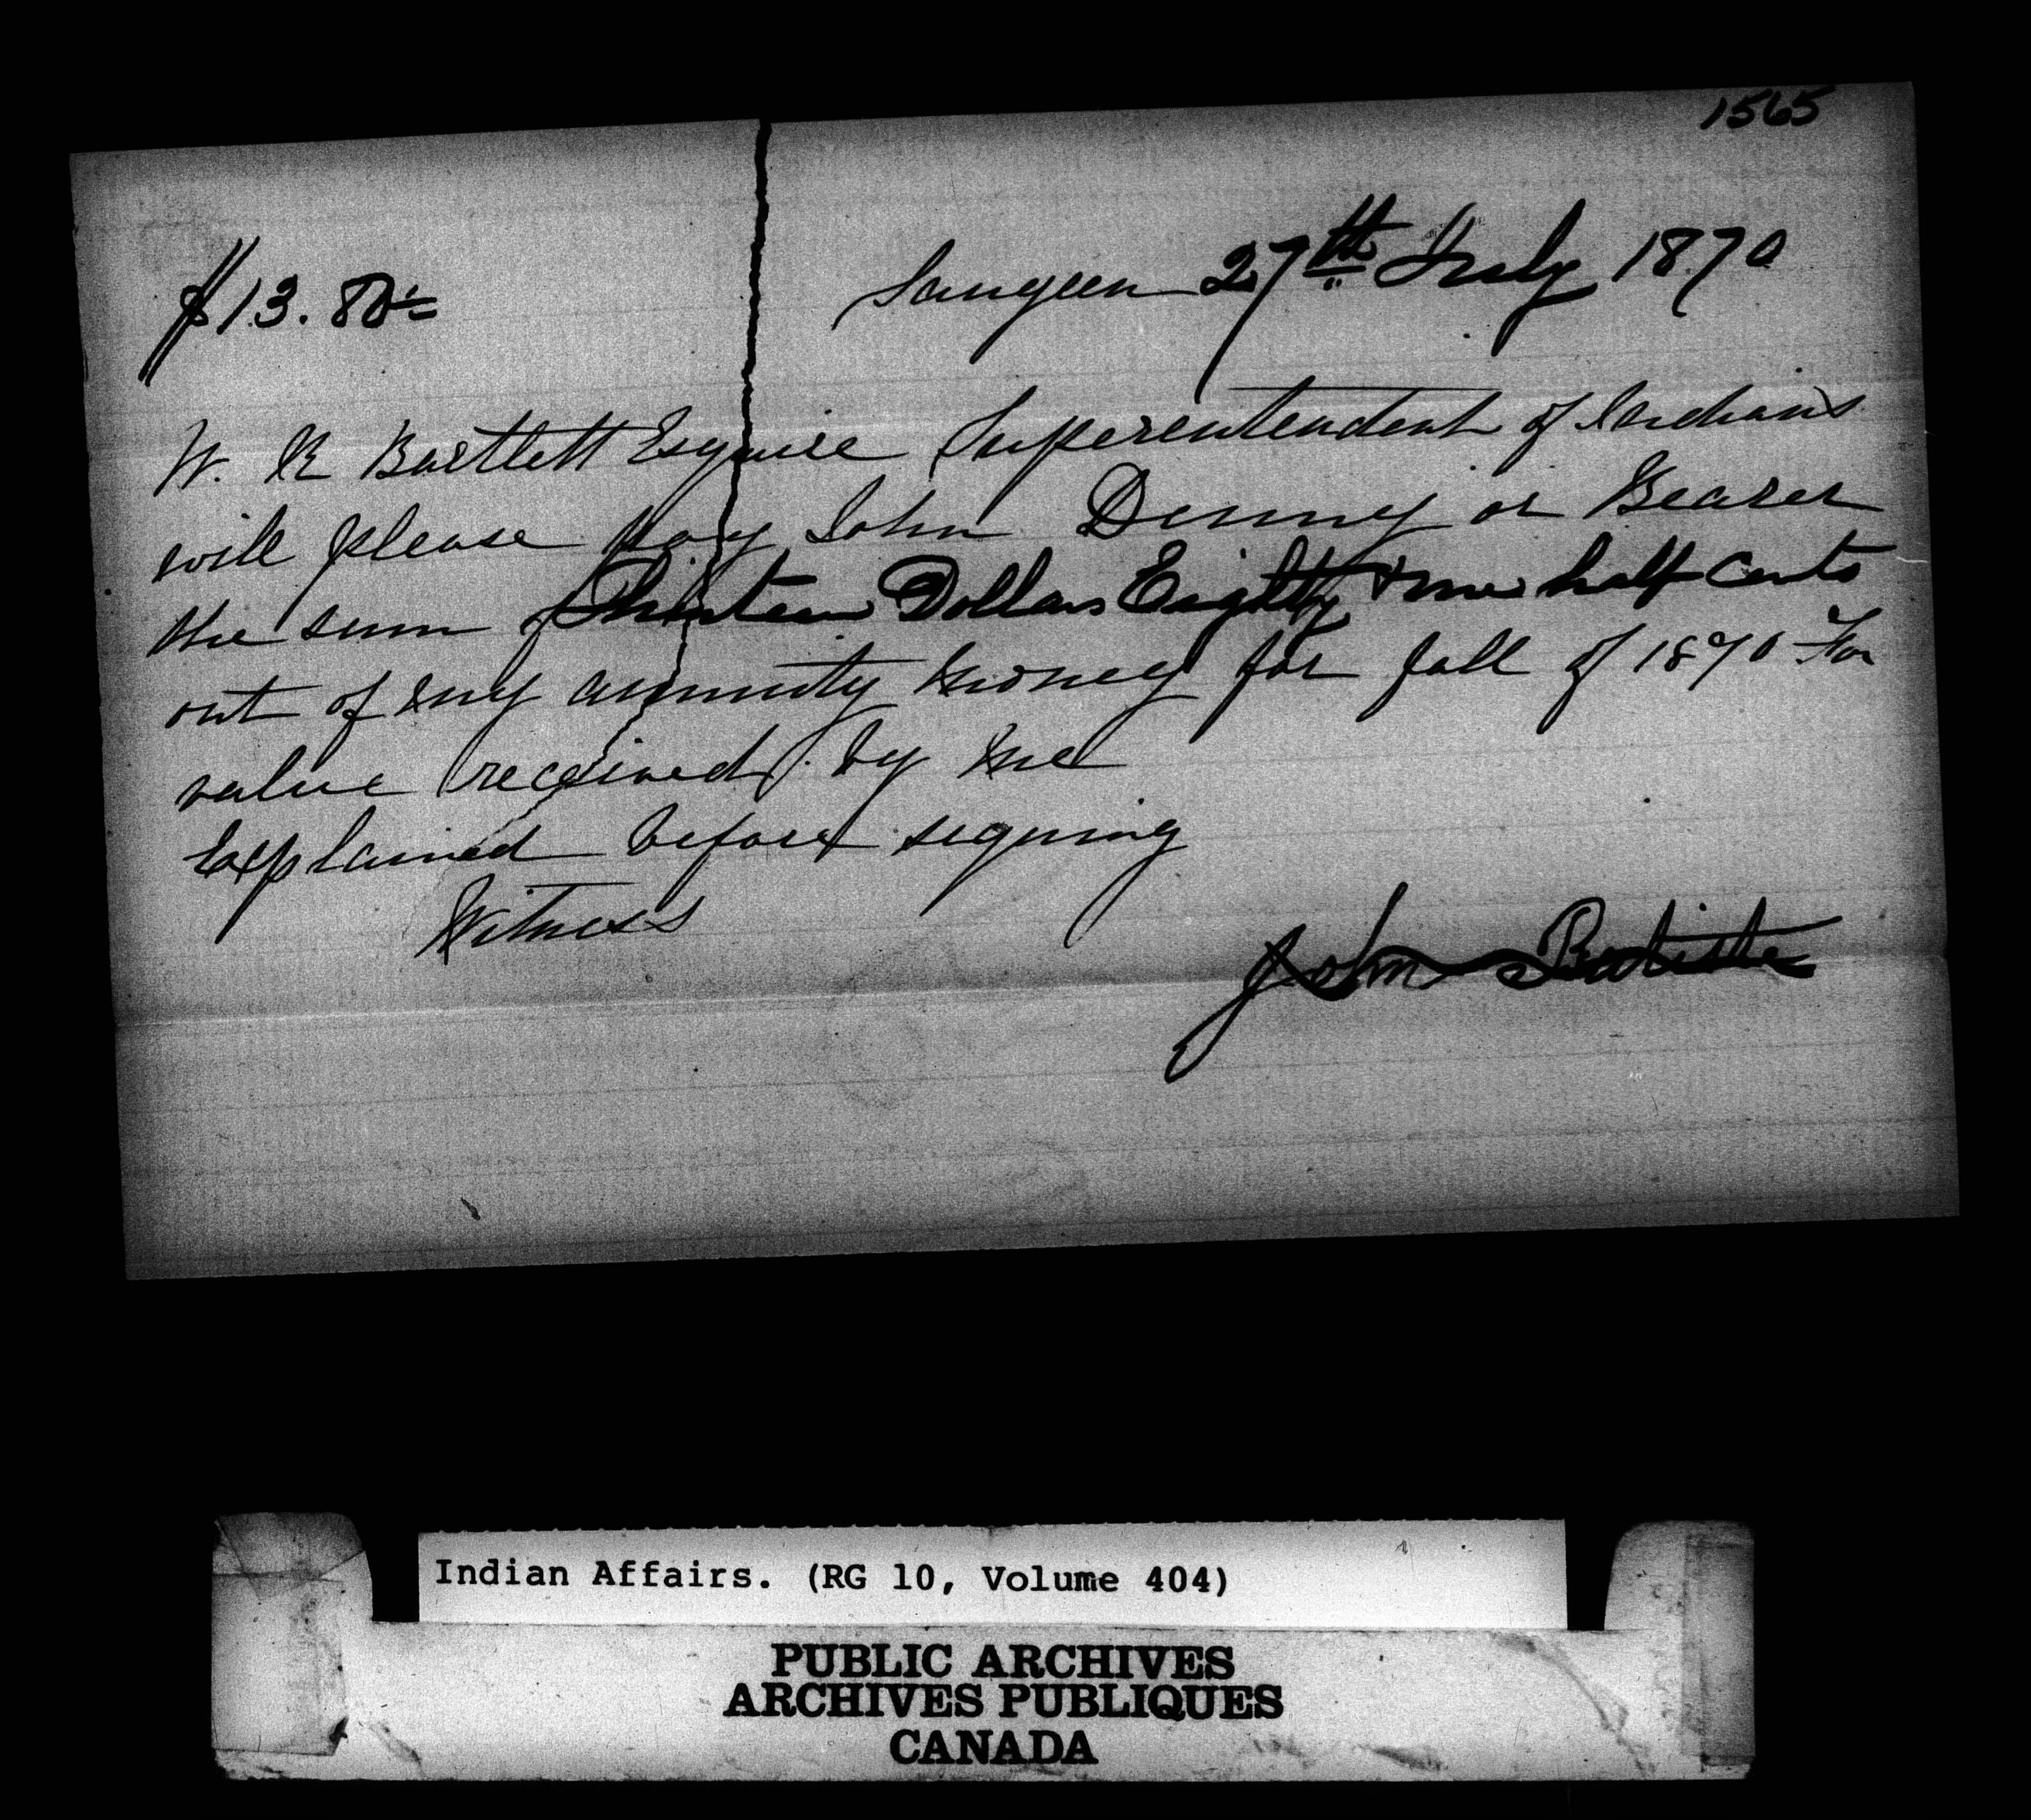 1565
$13.80½
Saugeen 27th July 1870
W. R Bartlett Esquire Superentendent of Indians
will please pay John Denny or Bearer
the sum of Thirteen Dollars Eighty & one half cents
out of my annuity money for fall of 1870 For
value received by me
Explained before signing
Witness
John Batiste
Indian Affairs. (RG 10, Volume 404)
PUBLIC ARCHIVES
ARCHIVES PUBLIQUES
CANADA